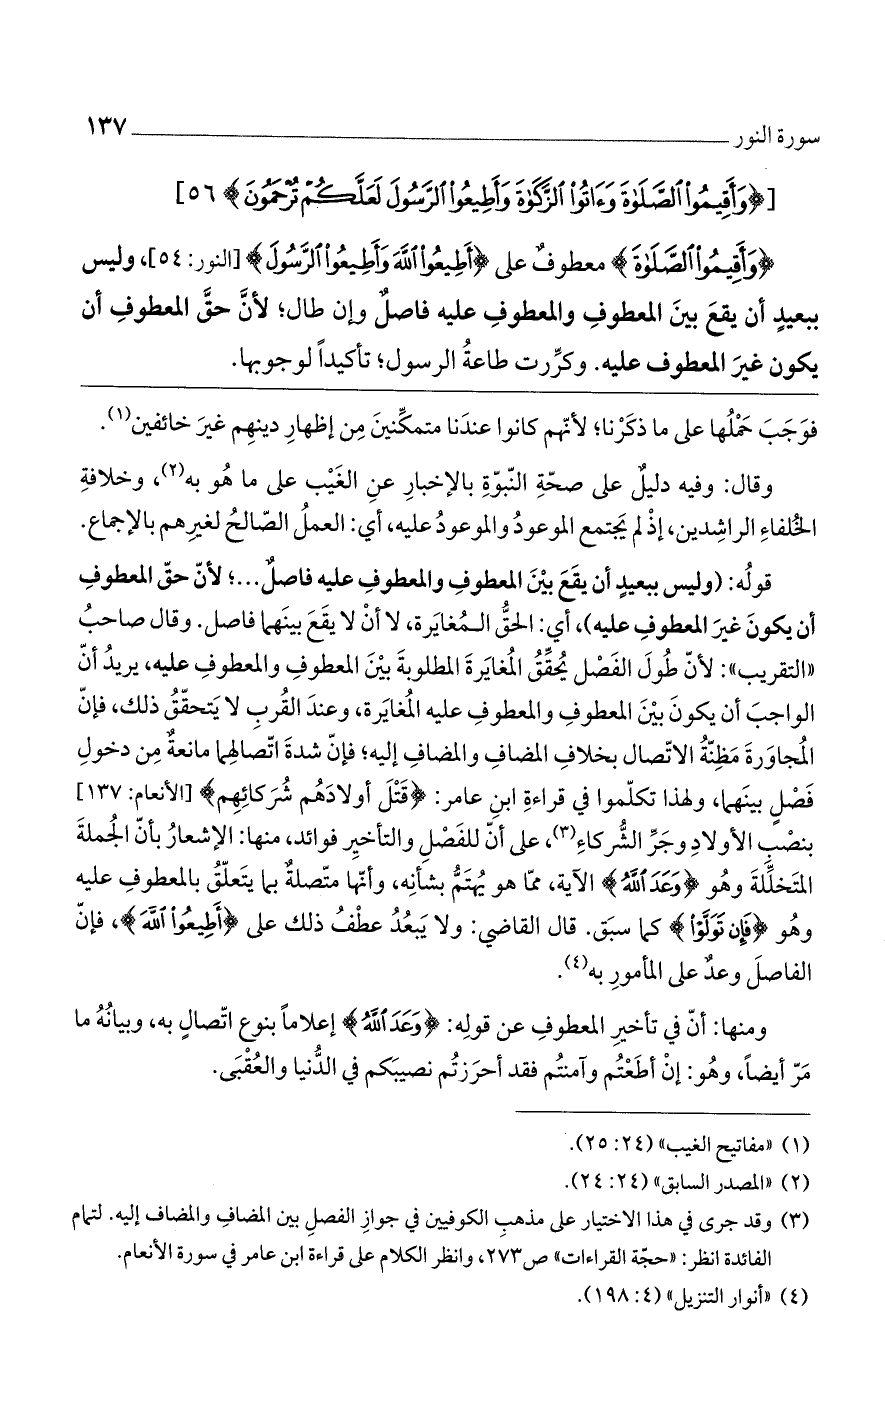 سورة النور ١٣٧
[﴿وَأَقِيمُوا۟ ٱلصَّلَوٰةَ وَءَاتُوا۟ ٱلزَّكَوٰةَ وَأَطِيعُوا۟ ٱلرَّسُولَ لَعَلَّكُمْ تُرْحَمُونَ﴾ ٥٦]
﴿وَأَقِيمُوا۟ ٱلصَّلَوٰةَ﴾ معطوفٌ على ﴿أَطِيعُوا۟ ٱللَّهَ وَأَطِيعُوا۟ ٱلرَّسُولَ﴾ [النور: ٥٤]، وليس
ببعيدٍ أن يقعَ بينَ المعطوفِ والمعطوفِ عليه فاصلٌ وإن طال؛ لأنَّ حقَّ المعطوفِ أن
يكون غيرَ المعطوف عليه. وكرِّرت طاعةُ الرسول؛ تأكيداً لوجوبها.
فوَجَبَ حَمْلُها على ما ذكَرْنا؛ لأنّهم كانوا عندَنا متمكِّنينَ مِن إظهارِ دينهِم غيرَ خائفين(١).
وقال: وفيه دليلٌ على صحّةِ النّبوّةِ بالإخبارِ عنِ الغَيْب على ما هُو به(٢)، وخلافةِ
الخُلفاءِ الراشِدين، إذْ لم يَجتمع الموعودُ والموعودُ عليه، أي: العملُ الصّالحُ لغيرِهم بالإجماع.
قولُه: (وليس ببعيدٍ أن يقَعَ بيْنَ المعطوفِ والمعطوفِ عليه فاصلٌ...؛ لأنّ حقّ المعطوفِ
أن يكونَ غيرَ المعطوفِ عليه)، أي: الحقُّ المُغايَرة، لا أنْ لا يقَعَ بينَهما فاصل. وقال صاحبُ
«التقريب»: لأنّ طُولَ الفَصْل يُحقِّقُ المُغايَرةَ المطلوبةَ بيْنَ المعطوفِ والمعطوفِ عليه، يريدُ أنّ
الواجبَ أن يكونَ بيْنَ المعطوفِ والمعطوفِ عليه المُغايَرة، وعندَ القُربِ لا يَتحقّقُ ذلك، فإنّ
المُجاوَرةَ مَظِنّةُ الاتّصال بخلافِ المضافِ والمضافِ إليه؛ فإنّ شدةَ اتّصالهِما مانعةٌ مِن دخولِ
فَصْلٍ بينَهما، ولهذا تكلّموا في قراءةِ ابنِ عامر: ﴿قَتْلَ أولادَهُم شُرَكائِهِم﴾ [الأنعام: ١٣٧]
بنصْبِ الأولادِ وجَرِّ الشُّركاءِ(٣)، على أنّ للفَصْلِ والتأخيرِ فوائد، منها: الإشعارُ بأنّ الجُملةَ
المتخلِّلةَ وهُو ﴿وَعَدَ ٱللَّهُ﴾ الآية، ممّا هو يُهتَمُّ بشأنِه، وأنّها متّصلةٌ بما يَتعلّقُ بالمعطوفِ عليه
وهُو ﴿فَإِن تَوَلَّوْا۟﴾ كما سبَق. قال القاضي: ولا يَبعُدُ عطْفُ ذلك على ﴿أَطِيعُوا۟ ٱللَّهَ﴾، فإنّ
الفاصلَ وعدٌ على المأمورِ به(٤).
ومنها: أنّ في تأخيرِ المعطوفِ عن قولِه: ﴿وَعَدَ ٱللَّهُ﴾ إعلاماً بنوع اتّصالٍ به، وبيانُهُ ما
مَرّ أيضاً، وهُو: إنْ أطَعْتُم وآمنتُم فقد أحرَزتُم نصيبَكم في الدُّنيا والعُقْبَى.
(١) «مفاتيح الغيب» (٢٤: ٢٥).
(٢) «المصدر السابق» (٢٤: ٢٤).
(٣) وقد جرى في هذا الاختيار على مذهبِ الكوفيين في جوازِ الفصلِ بين المضافِ والمضاف إليه. لتمام
الفائدة انظر: «حجّة القراءات» ص٢٧٣، وانظر الكلام على قراءة ابن عامر في سورة الأنعام.
(٤) «أنوار التنزيل» (٤: ١٩٨).